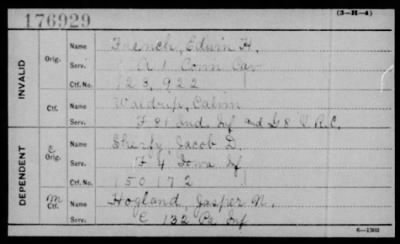 176929
(3-H-4)
INVALID
Orig.
Name French, Edwin H.
Serv. A 1 Conn Cav
Ctf. No. 123,922
Ctf.
Name Waldrip, Calvin
Serv. F 81 Ind. Inf and G 8 V.R.C.
DEPENDENT
C Orig.
Name Jacob D.
Serv. F 4 Iowa Inf
Ctf. No. 150172
M Ctf.
Name Hogland, Jasper N.
Serv. C 132 Inf
6—1308